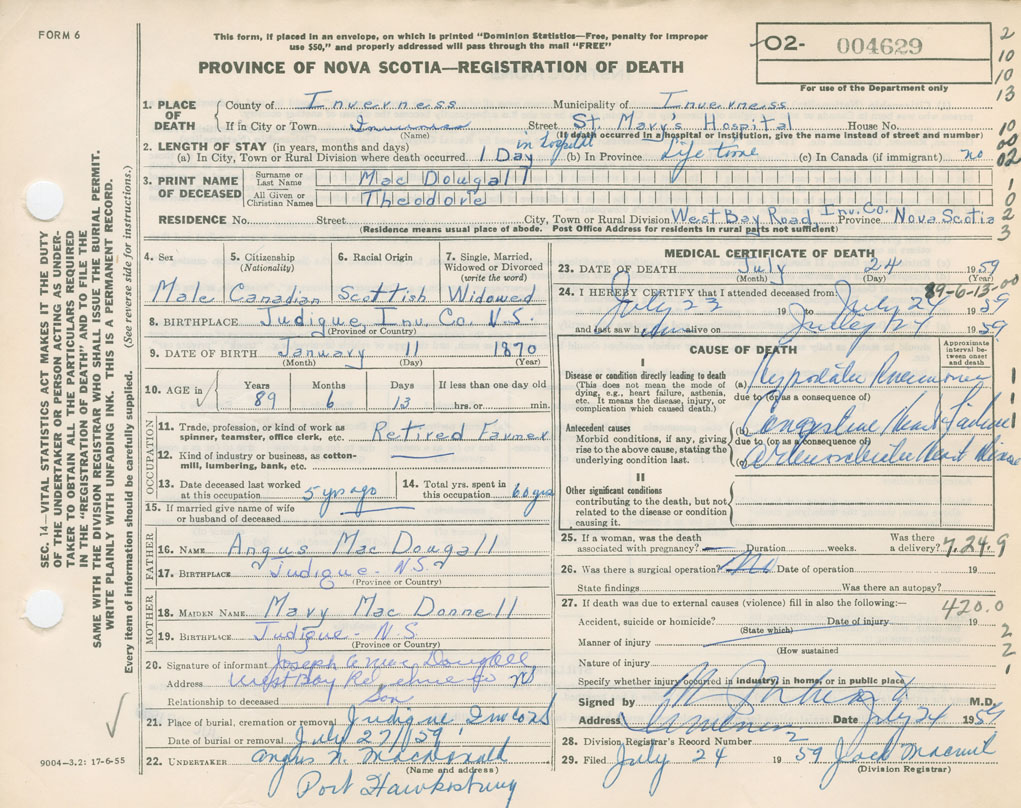 FORM 6
This form, if placed in an envelope, on which is printed "Dominion Statistics—Free, penalty for improper
use $50," and properly addressed will pass through the mail "FREE"
PROVINCE OF NOVA SCOTIA—REGISTRATION OF DEATH
02- 004629
For use of the Department only
2
10
10
13
10
00
02
1
0
2
3
SEC. 14—VITAL STATISTICS ACT MAKES IT THE DUTY
OF THE UNDERTAKER OR PERSON ACTING AS UNDER-
TAKER TO OBTAIN ALL THE PARTICULARS REQUIRED
IN THE "REGISTRATION OF DEATH" AND TO FILE THE
SAME WITH THE DIVISION REGISTRAR WHO SHALL ISSUE THE BURIAL PERMIT.
WRITE PLAINLY WITH UNFADING INK. THIS IS A PERMANENT RECORD.
Every item of information should be carefully supplied. (See reverse side for instructions.)
1. PLACE OF DEATH County of Inverness Municipality of Inverness
If in City or Town Street St. Mary's Hospital House No.
(Name) (If death occurred in Hospital or institution, give the name instead of street and number)
2. LENGTH OF STAY (in years, months and days) in hospital
(a) In City, Town or Rural Division where death occurred 1 Day (b) In Province Life time (c) In Canada (if immigrant) no
3. PRINT NAME OF DECEASED Surname or Last Name MacDougall
All Given or Christian Names Theodore
RESIDENCE No. Street City, Town or Rural Division West Bay Road, Inv. Co. Province Nova Scotia
(Residence means usual place of abode. Post Office Address for residents in rural parts not sufficient)
4. Sex 5. Citizenship (Nationality) 6. Racial Origin 7. Single, Married, Widowed or Divorced (write the word)
Male Canadian Scottish Widowed
8. BIRTHPLACE Judique, Inv. Co. N.S.
(Province or Country)
9. DATE OF BIRTH January 11 1870
(Month) (Day) (Year)
10. AGE in Years Months Days If less than one day old
89 6 13 hrs. or min.
OCCUPATION
11. Trade, profession, or kind of work as spinner, teamster, office clerk, etc. Retired Farmer
12. Kind of industry or business, as cotton-mill, lumbering, bank, etc.
13. Date deceased last worked at this occupation 5 yrs ago 14. Total yrs. spent in this occupation 60 yrs
15. If married give name of wife or husband of deceased
FATHER
16. NAME Angus MacDougall
17. BIRTHPLACE Judique - N.S.
(Province or Country)
MOTHER
18. MAIDEN NAME Mary MacDonnell
19. BIRTHPLACE Judique - N.S.
(Province or Country)
20. Signature of informant Joseph MacDougall
Address West Bay Rd NS
Relationship to deceased Son
21. Place of burial, cremation or removal Judique
Date of burial or removal July 27/59
22. UNDERTAKER Angus MacDonald
(Name and address)
Port Hawkesbury
9004-3.2: 17-6-55
MEDICAL CERTIFICATE OF DEATH
23. DATE OF DEATH July 24 1959
(Month) (Day) (Year)
89-6-13-00
24. I HEREBY CERTIFY that I attended deceased from
July 23 19 to July 24 1959
and last saw him alive on 24 1959
CAUSE OF DEATH
Approximate interval between onset and death
I
Disease or condition directly leading to death
(This does not mean the mode of dying, e.g., heart failure, asthenia, etc. It means the disease, injury, or complication which caused death.)
(a) Hypostatic Pneumonia
due to (or as a consequence of)
Antecedent causes
Morbid conditions, if any, giving rise to the above cause, stating the underlying condition last.
(b) Congestive Heart Failure
due to (or as a consequence of)
(c) Arteriosclerotic Heart Disease
II
Other significant conditions
contributing to the death, but not related to the disease or condition causing it.
25. If a woman, was the death associated with pregnancy? Duration weeks. Was there a delivery?
7.24.9
26. Was there a surgical operation? No Date of operation 19
State findings Was there an autopsy?
27. If death was due to external causes (violence) fill in also the following:—
420.0
Accident, suicide or homicide? Date of injury 19
(State which)
Manner of injury
(How sustained
Nature of injury
Specify whether injury occurred in industry, in home, or in public place
2
2
1
Signed by M.D.
Address Inverness Date July 24 1959
28. Division Registrar's Record Number 2
29. Filed July 24 1959 Jack
(Division Registrar)